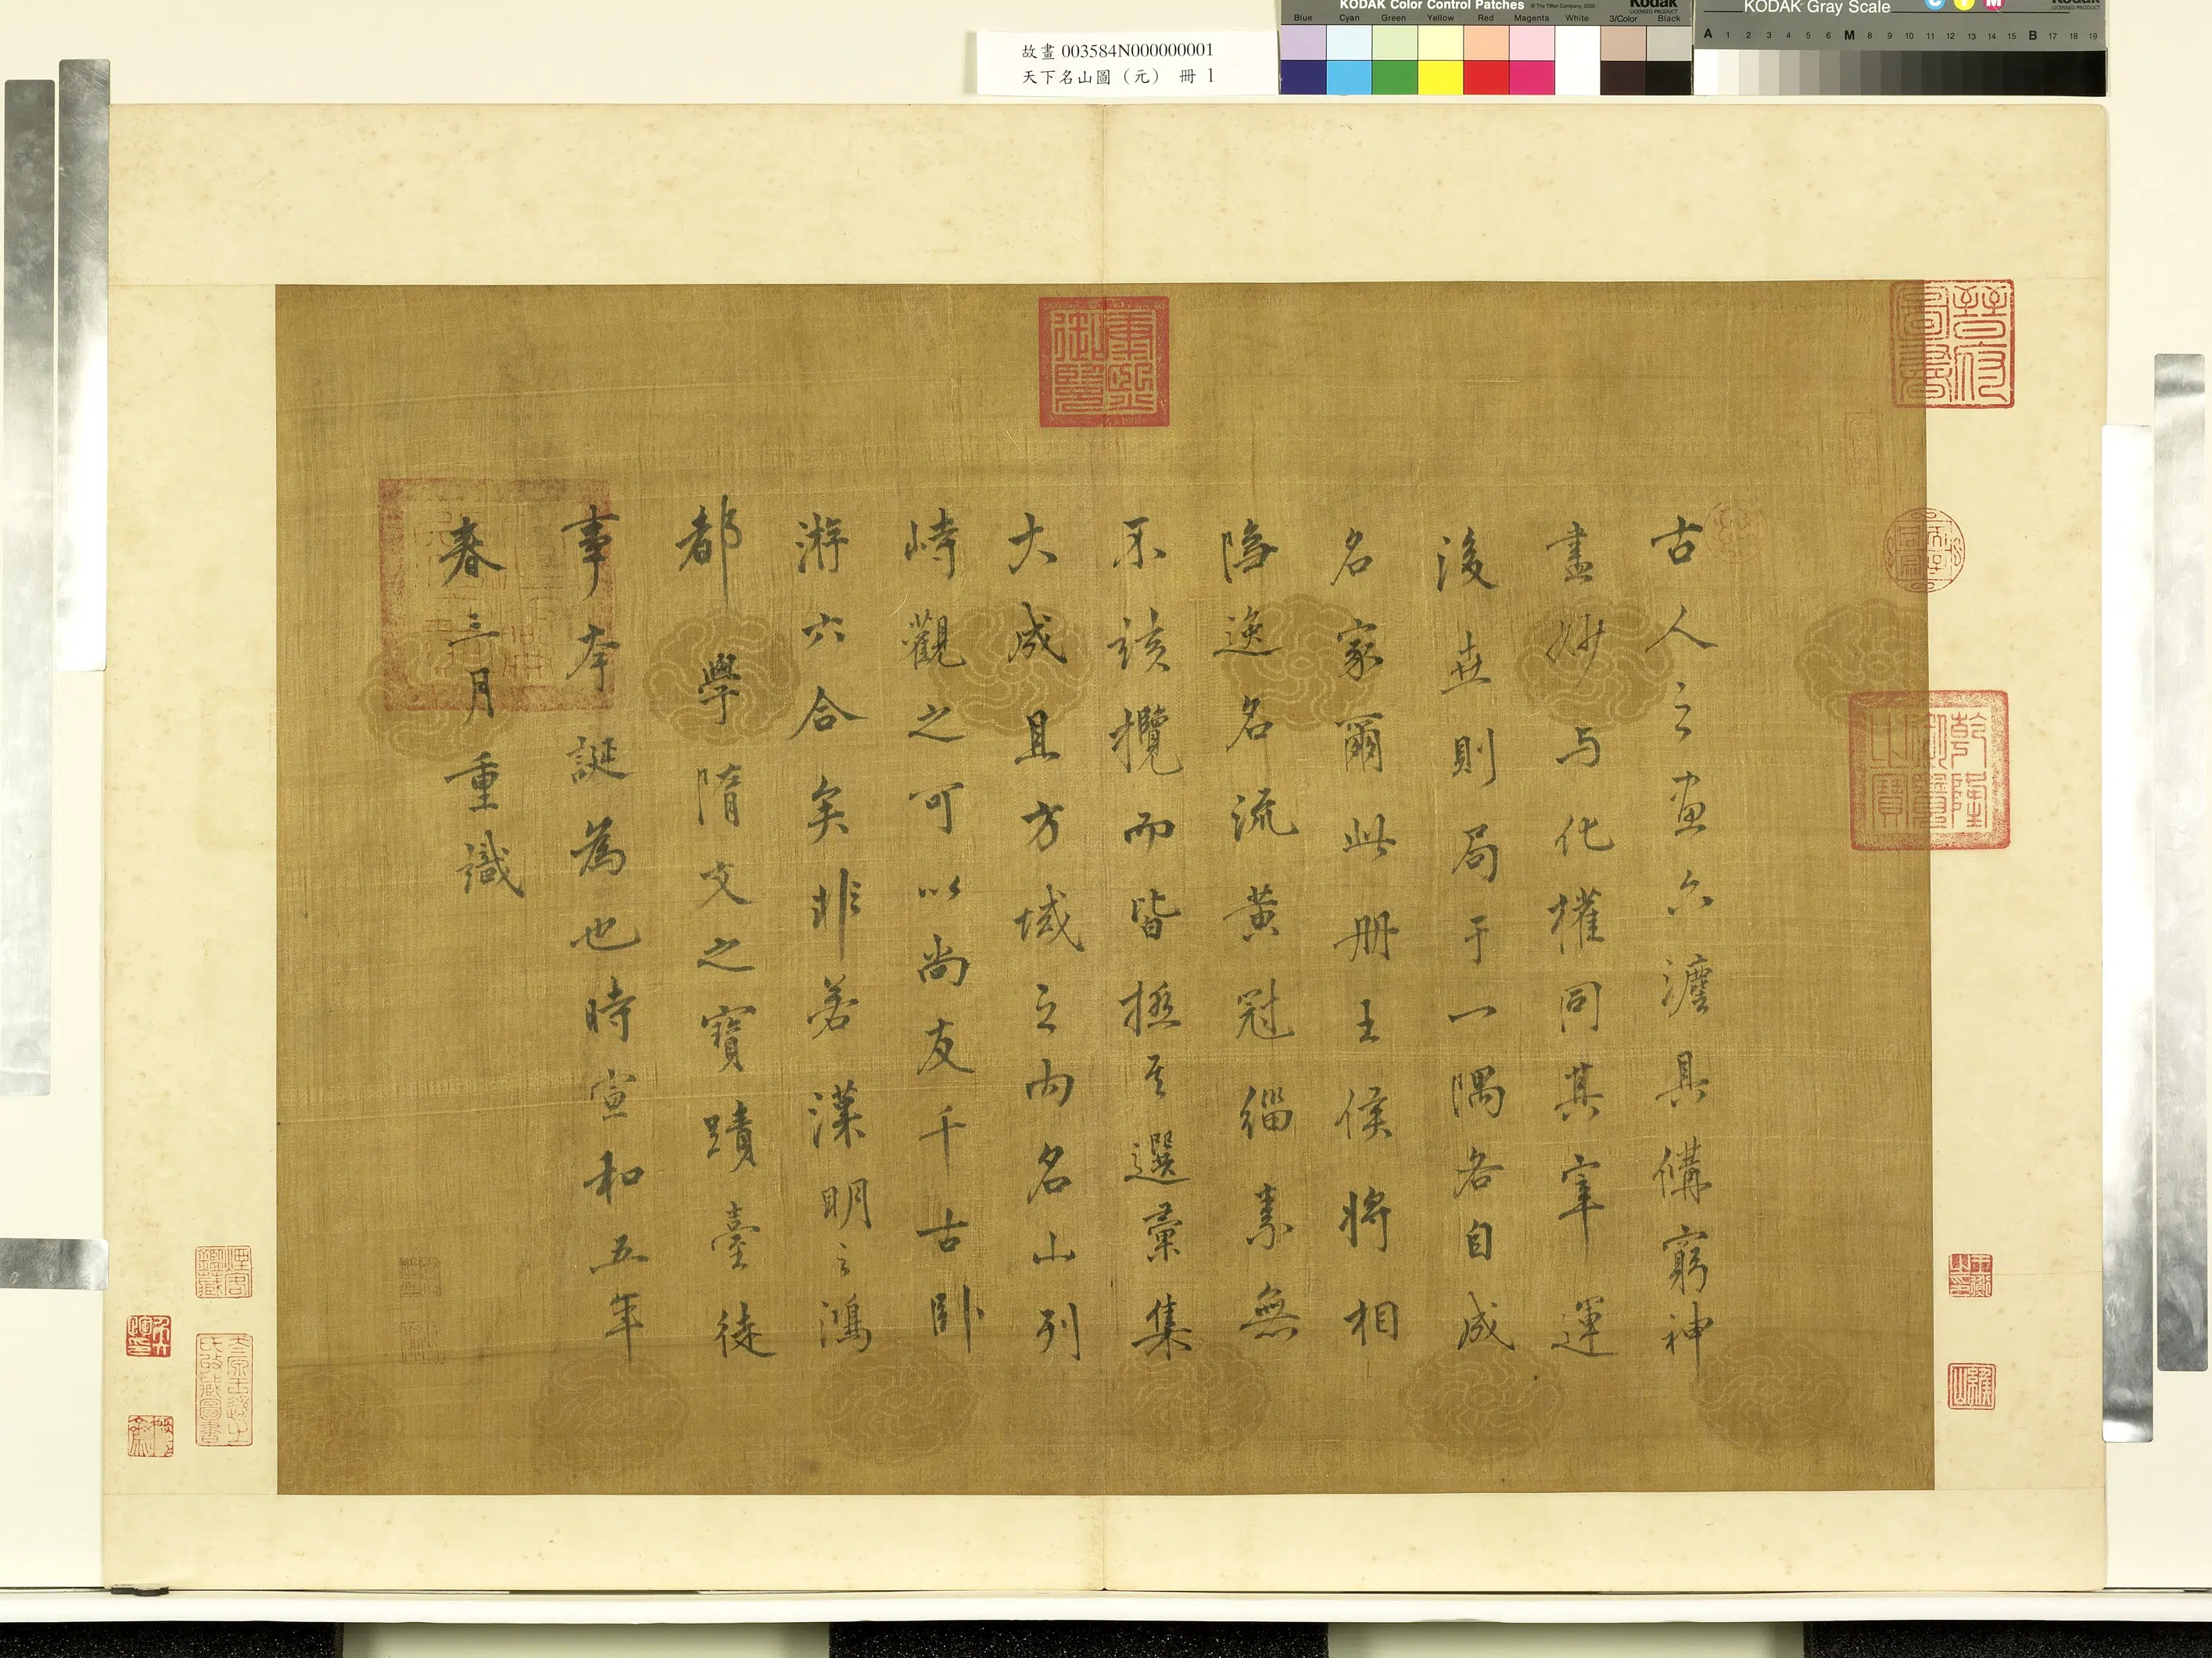 故畫 003584N000000001
天下名山圖（元） 冊 1
KODAK Color Control Patches
© The Tiffen Company, 2000
Kodak
LICENSED PRODUCT
Blue Cyan Green Yellow Red Magenta White 3/Color Black
KODAK Gray Scale
C Y M
Kodak
LICENSED PRODUCT
A 1 2 3 4 5 6 M 8 9 10 11 12 13 14 15 B 17 18 19
古人之画六灋具備窮神
盡妙与化權同其宰運
後世則局于一隅各自成
名家爾此册王侯將相
隐逸名流黄冠緇素無
不該攬而皆極其選彙集
大成且方域之内名山列
峙觀之可以尚友千古卧
游六合矣非若漢明之鴻
都學隋文之寶蹟臺徒
事夸誕為也時宣和五年
春三月重識
乾隆御覽之寶
煙客鑑藏
太原王遜之氏收藏圖書